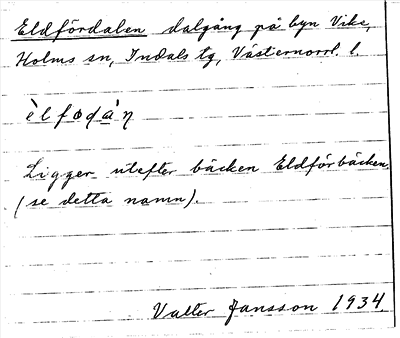 Eldfördalen dalgång på byn Vike,
Holms sn, Indals tg, Västernorrl. l.
Ligger utefter bäcken Eldförbäcken
(se detta namn).
Valter Jansson 1934.